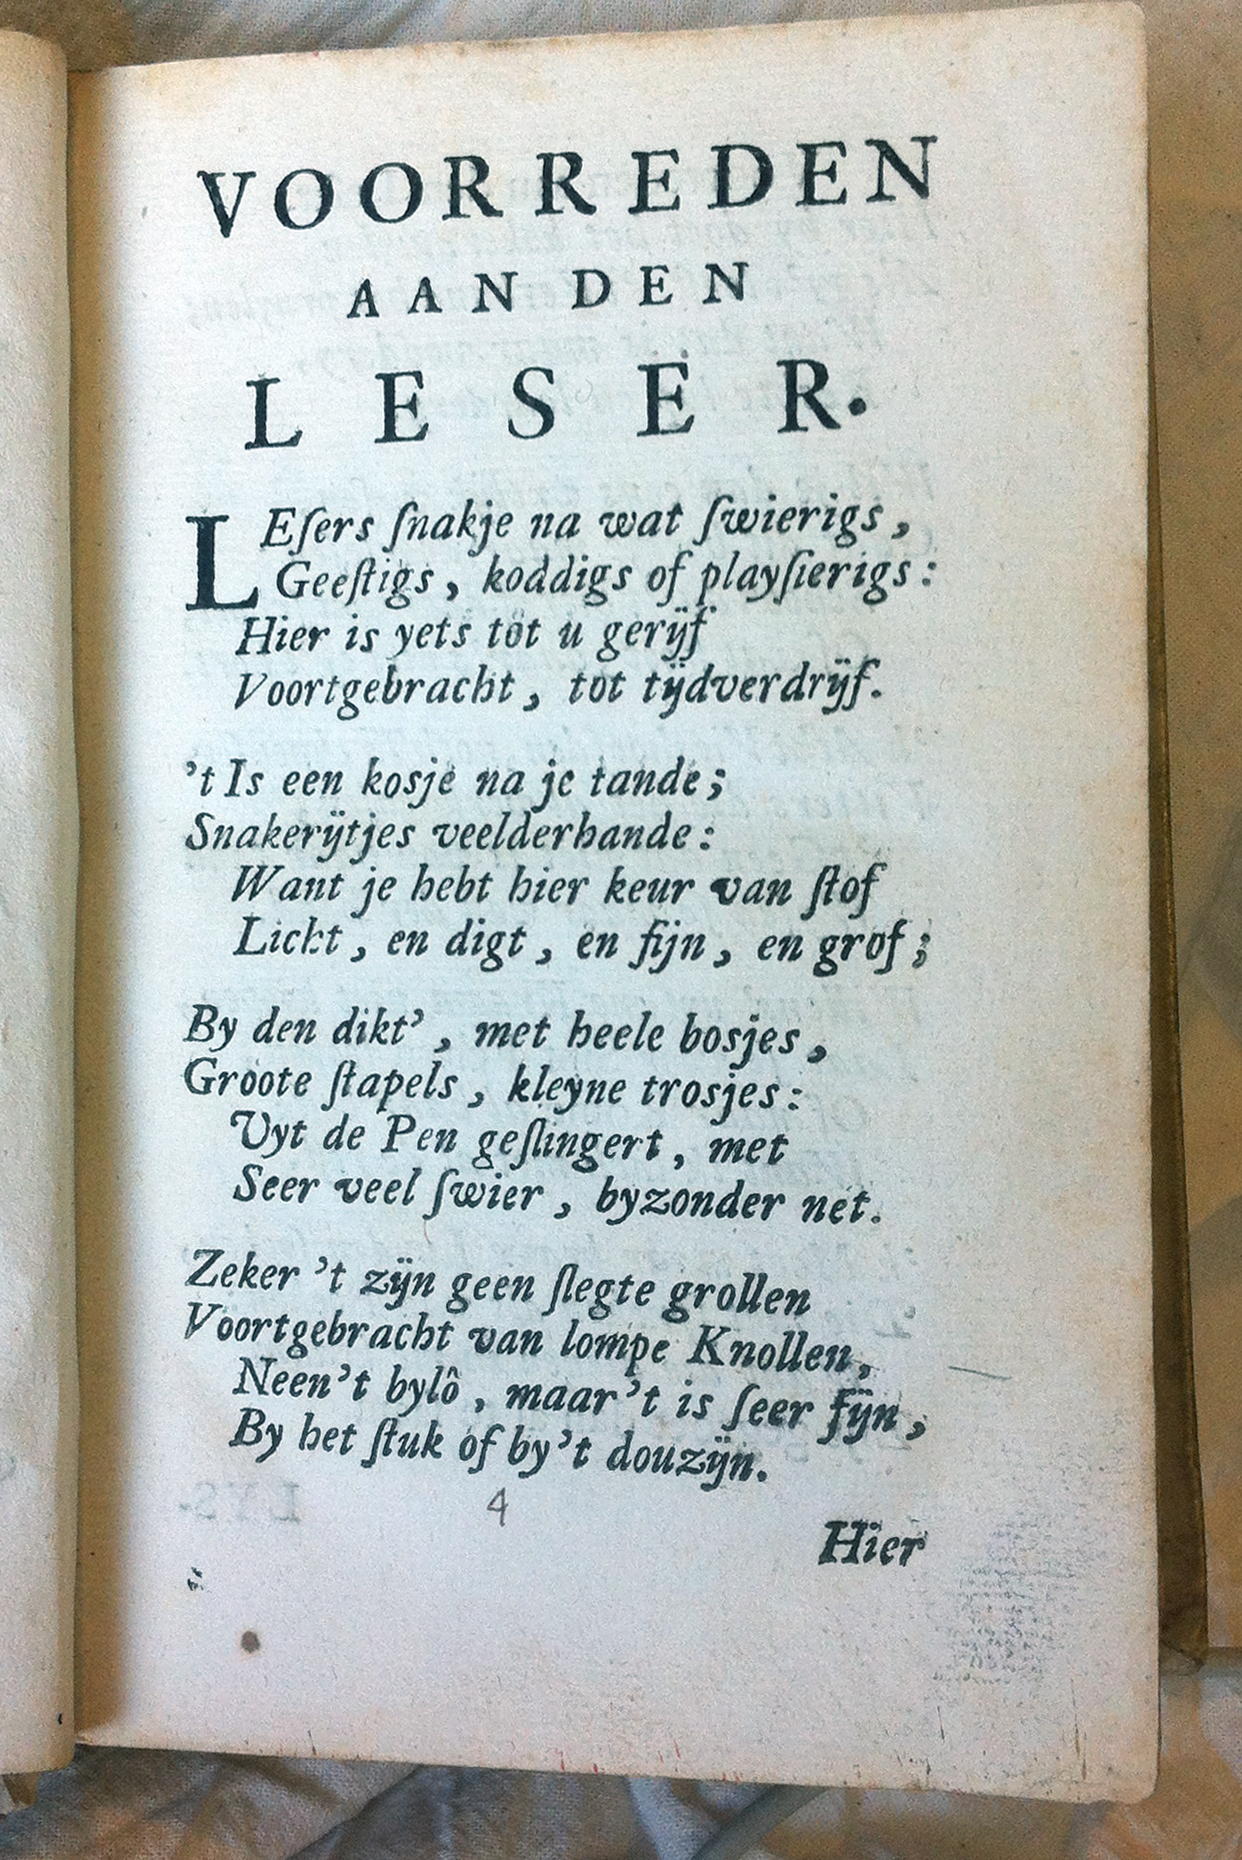 VOORREDEN
AAN DEN
LESER.
LEſers ſnakje na wat ſwierigs,
Geeſtigs, koddigs of playſierigs:
Hier is yets tot u gerijf
Voortgebracht, tot tijdverdrijf.
't Is een kosje na je tande;
Snakerijtjes veelderhande:
Want je hebt hier keur van ſtof
Licht, en digt, en fijn, en grof;
By den dikt', met heele bosjes,
Groote ſtapels, kleyne trosjes:
Uyt de Pen geſlingert, met
Seer veel ſwier, byzonder net.
Zeker 't zijn geen ſlegte grollen
Voortgebracht van lompe Knollen,
Neen 't bylô, maar 't is ſeer fijn,
By het ſtuk of by 't douzijn.
4
Hier